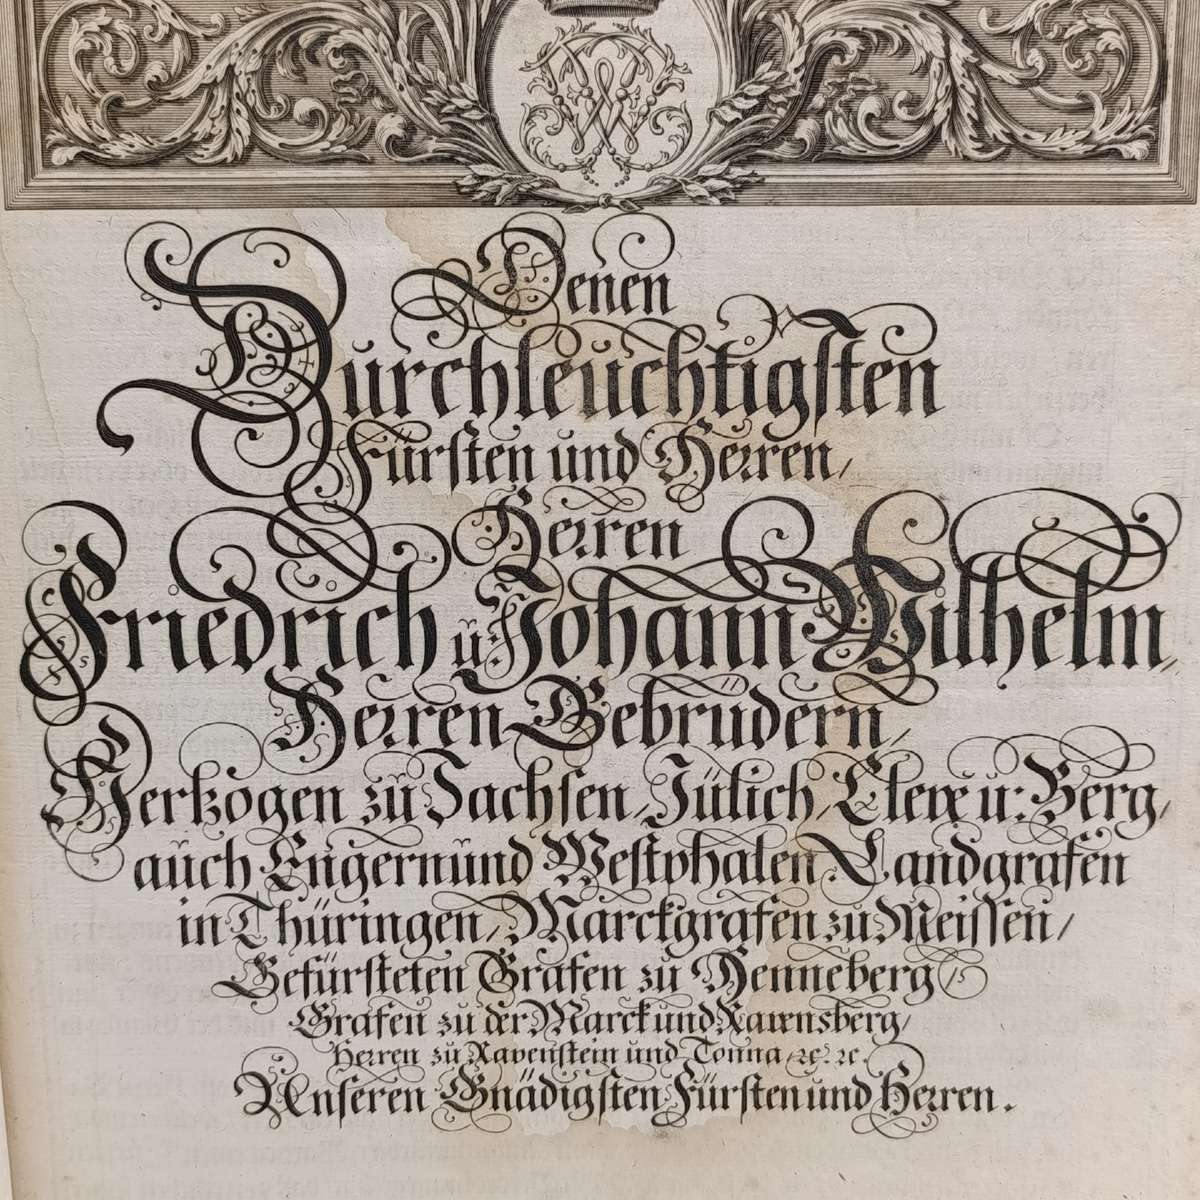 Denen
Durchleuchtigsten
Fürsten und Herren/
Herren
Friedrich ŭ. Johann Wilhelm,
Herren Gebrüdern/
Hertzogen zŭ Sachsen/ Jülich/ Cleve u: Berg/
aŭch Engern ŭnd Westphalen/ Landgrafen
in Thüringen/ Marckgrafen zu Meissen/
Gefürsteten Grafen zŭ Henneberg/
Grafen zŭ der Marck und Ravensberg/
Herren zŭ Ravenstein und Tonna/ ꝛc. ꝛc.
Unseren Gnädigsten Fürsten und Herren.